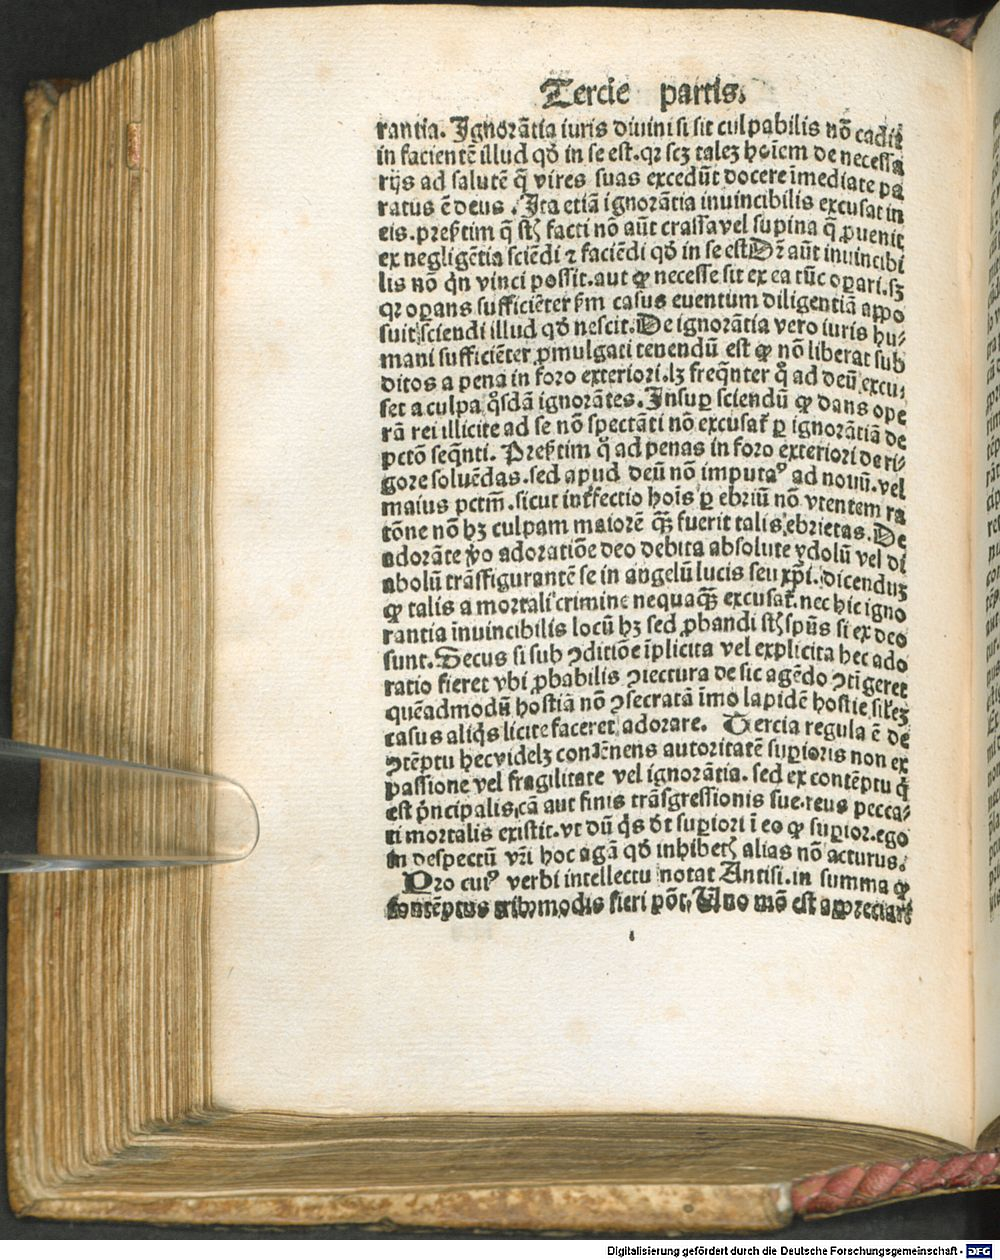 Tercie partis.
rantia. Ignorãtia iuris diuini si sit culpabilis nõ cadit
in facientẽ illud qđ in se est. qꝛ scꝫ taleꝫ hoĩem de necessa
rijs ad salutẽ q̃ vires suas excedũt docere ĩmediate pa
ratus ẽ deus. Ita etiã ignorãtia inuincibilis excusat in
eis. presertim q̃ facti nõ aũt crassa vel supina q̃ ꝓuenit
ex negligẽtia sciẽdi ⁊ faciẽdi qđ in se est Dꝛ aũt inuincibi
lis nõ qn̄ vinci possit. aut ꝙ necesse sit ex ea tũc oꝑari. sꝫ
qꝛ oꝑans sufficiẽter ẜm casus euentum diligentiã appo
suit sciendi illud qđ nescit. De ignorãtia vero iuris hu⸗
mani sufficiẽter ꝓmulgati tenendũ est ꝙ nõ liberat sub
ditos a pena in foro exteriori. lꝫ freq̃nter q̊ ad deũ excu⸗
set a culpa q̊sdã ignorãtes. Insuꝑ sciendũ ꝙ dans ope
rã rei illicite ad se nõ spectãti nõ excusat̃ ꝑ ignorãtiã de
pctõ seq̃nti. Presertim q̊ ad penas in foro exteriori de ri⸗
gore soluẽdas. sed apud deũ nõ imputaꝰ ad nouũ. vel
maius pctm̃. sicut int̃fectio hoĩs ꝑ ebriũ nõ vtentem ra
tõne nõ hꝫ culpam maiorẽ q̃ꝫ fuerit talis ebrietas. De
adorãte ṽo adoratiõe deo debita absolute ydolũ vel di
abolũ trãsfigurantẽ se in angelũ lucis seu xp̃i. dicenduꝫ
ꝙ talis a mortali crimine nequaq̃ꝫ excusat̃. nec hic igno
rantia ĩnuincibilis locũ hꝫ sed ꝓbandi spũs si ex deo
sunt. Secus si sub ꝯditiõe ĩplicita vel explicita hec ado
ratio fieret vbi ꝓbabilis ꝯiectura de sic agẽdo ꝯtĩgeret
quẽadmodũ hostiã nõ ꝯsecratã ĩmo lapidẽ hostie sil̃eꝫ
casus aliq̊s licite faceret adorare. Tercia regula ẽ de
ꝯtẽptu hec videlꝫ contẽnens autoritatẽ suꝑioris non ex
passione vel fragilitate vel ignorãtia. sed ex contẽptu q̊
est p̃ncipalis cã aut finis trãsgressionis sue. reus pecca⸗
ti mortalis existit. vt dũ q̊s dt̃ suꝑiori ĩ eo ꝙ suꝑior. ego
in despectũ vr̃i hoc agã qđ inhibetꝭ alias nõ acturus.
Pro cuiꝰ verbi intellectu notat Antisi. in summa ꝙ
contẽptus tribꝰ modis fieri põt. Uno mõ est appreciari
Digitalisierung gefördert durch die Deutsche Forschungsgemeinschaft - DFG